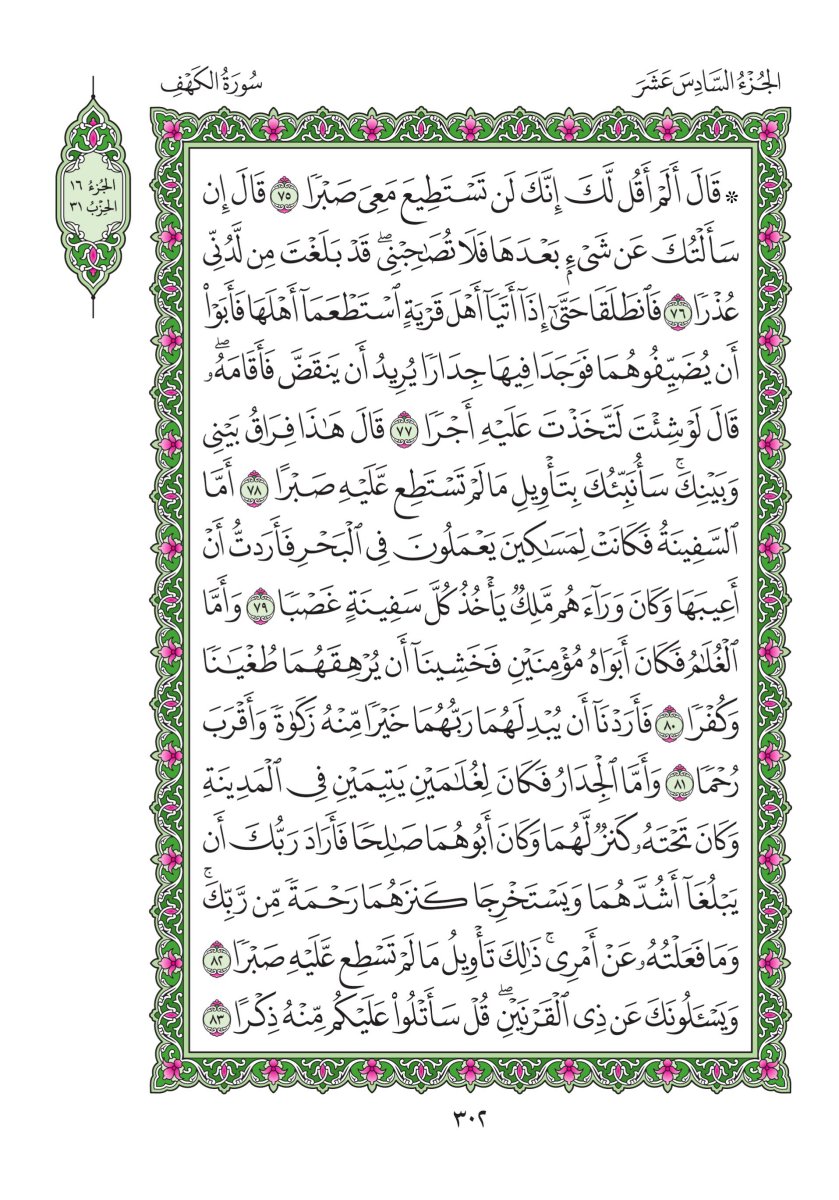 الجُزْءُ السَّادِسَ عَشَرَ
سُورَةُ الكَهْفِ
الجُزءُ ١٦
الحِزْبُ ٣١
۞ قَالَ أَلَمْ أَقُل لَّكَ إِنَّكَ لَن تَسْتَطِيعَ مَعِيَ صَبْرٗا ٧٥ قَالَ إِن
سَأَلْتُكَ عَن شَيْءِۭ بَعْدَهَا فَلَا تُصَٰحِبْنِيۖ قَدْ بَلَغْتَ مِن لَّدُنِّي
عُذْرٗا ٧٦ فَٱنطَلَقَا حَتَّىٰٓ إِذَآ أَتَيَآ أَهْلَ قَرْيَةٍ ٱسْتَطْعَمَآ أَهْلَهَا فَأَبَوْاْ
أَن يُضَيِّفُوهُمَا فَوَجَدَا فِيهَا جِدَارٗا يُرِيدُ أَن يَنقَضَّ فَأَقَامَهُۥۖ
قَالَ لَوْ شِئْتَ لَتَّخَذْتَ عَلَيْهِ أَجْرٗا ٧٧ قَالَ هَٰذَا فِرَاقُ بَيْنِي
وَبَيْنِكَۚ سَأُنَبِّئُكَ بِتَأْوِيلِ مَا لَمْ تَسْتَطِع عَّلَيْهِ صَبْرًا ٧٨ أَمَّا
ٱلسَّفِينَةُ فَكَانَتْ لِمَسَٰكِينَ يَعْمَلُونَ فِي ٱلْبَحْرِ فَأَرَدتُّ أَنْ
أَعِيبَهَا وَكَانَ وَرَآءَهُم مَّلِكٞ يَأْخُذُ كُلَّ سَفِينَةٍ غَصْبٗا ٧٩ وَأَمَّا
ٱلْغُلَٰمُ فَكَانَ أَبَوَاهُ مُؤْمِنَيْنِ فَخَشِينَآ أَن يُرْهِقَهُمَا طُغْيَٰنٗا
وَكُفْرٗا ٨٠ فَأَرَدْنَآ أَن يُبْدِلَهُمَا رَبُّهُمَا خَيْرٗا مِّنْهُ زَكَوٰةٗ وَأَقْرَبَ
رُحْمٗا ٨١ وَأَمَّا ٱلْجِدَارُ فَكَانَ لِغُلَٰمَيْنِ يَتِيمَيْنِ فِي ٱلْمَدِينَةِ
وَكَانَ تَحْتَهُۥ كَنزٞ لَّهُمَا وَكَانَ أَبُوهُمَا صَٰلِحٗا فَأَرَادَ رَبُّكَ أَن
يَبْلُغَآ أَشُدَّهُمَا وَيَسْتَخْرِجَا كَنزَهُمَا رَحْمَةٗ مِّن رَّبِّكَۚ
وَمَا فَعَلْتُهُۥ عَنْ أَمْرِيۚ ذَٰلِكَ تَأْوِيلُ مَا لَمْ تَسْطِع عَّلَيْهِ صَبْرٗا ٨٢
وَيَسْـَٔلُونَكَ عَن ذِي ٱلْقَرْنَيْنِۖ قُلْ سَأَتْلُواْ عَلَيْكُم مِّنْهُ ذِكْرًا ٨٣
٣٠٢